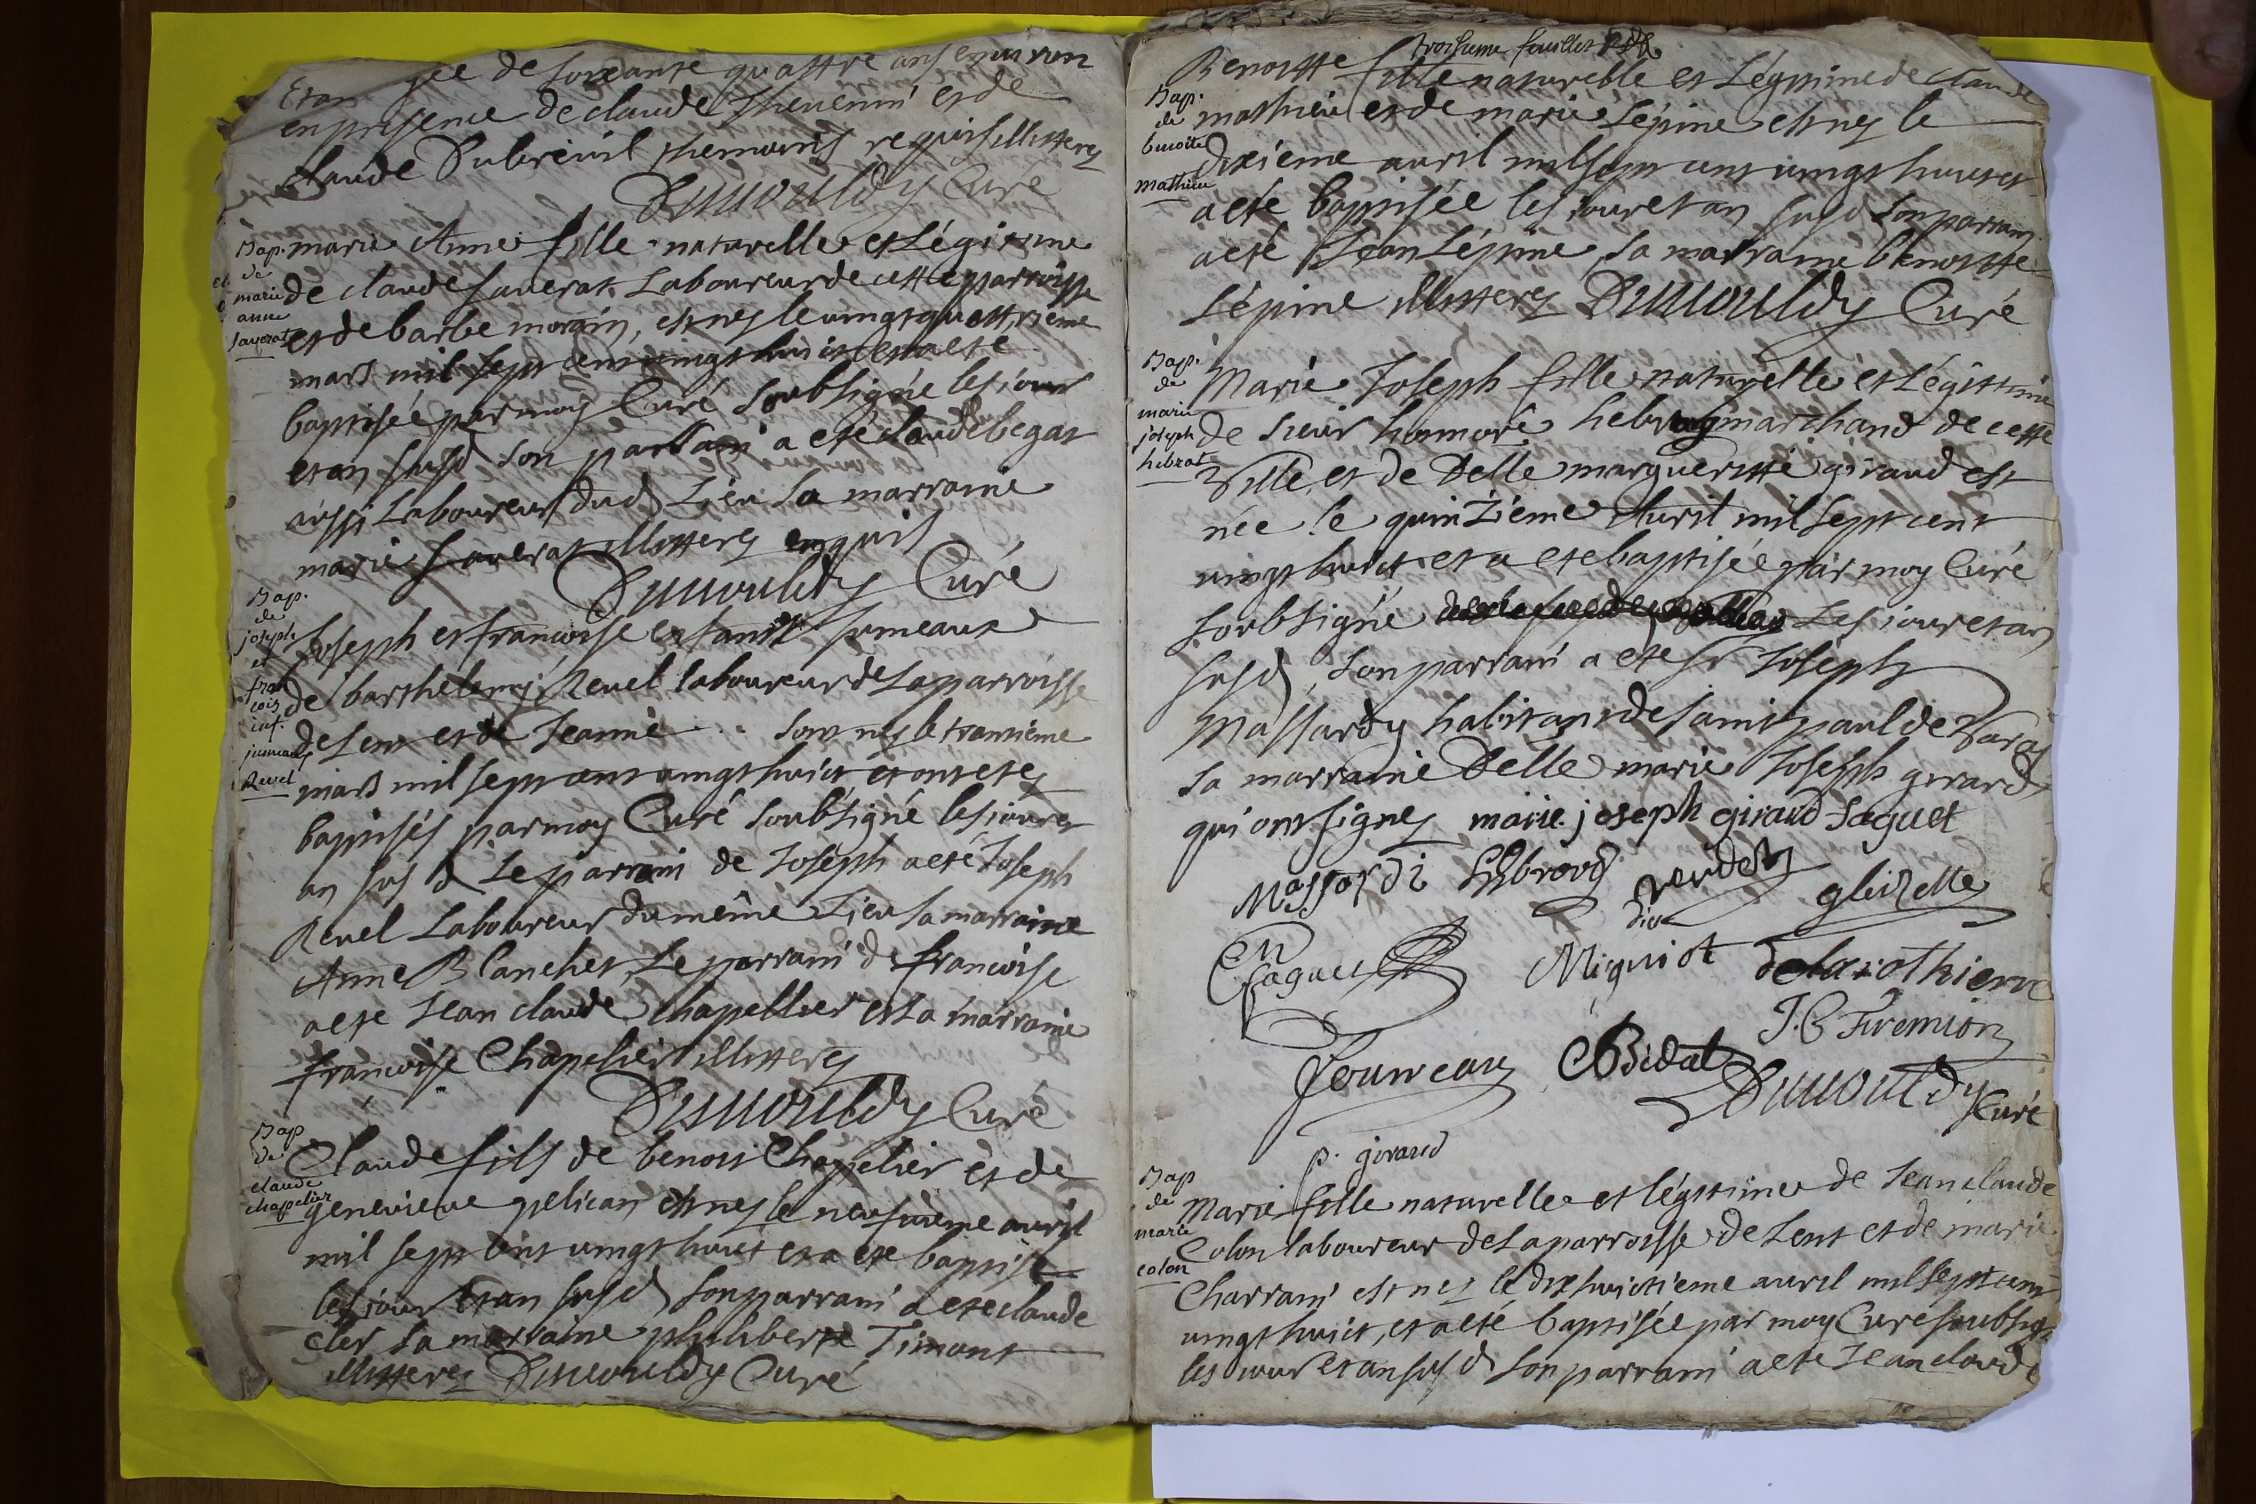 Etan gée de soixante quattre ans environ
en presence de claude Thevenin et de
claude Dubreuil themoins requis illitterez
Dumouldy Curé
Bap.
de
marie
anne
saverat
marie Anne fille naturelle et Légitime
de claude saverat Laboureur de cette parroisse
et de barbe morgin, est nez le vingt quattrieme
mars mil sept cent vingt huict et a eté
baptisée par moy Curé soubsigné les jour
et an susd son parrain a eté claude begat
aussi Laboureur dud Lieu sa marraine
marie saverat illitterez enquis
Dumouldy Curé
Bap.
de
joseph
et
fran
cois
inf.
jumeaux
Revel
Joseph et francoise enfants jumeaux
de barthelemy Revel laboureur de la parroisse
de Lent et de Jeanne sont nez le trantième
mars mil sept cent vingt huict et ont etez
baptisés par moy Curé soubsigné les jour et
an susd Le parrain de Joseph a eté Joseph
Revel Laboureur du même Lieu sa marraine
Anne Blanchet, Le parrain de francoise
a eté Jean claude chapellier et sa marraine
francoise Chapelier illitterez
Dumouldy Curé
Bap
de
claude
chapelier
Claude fils de benoit Chapelier et de
genevieve pelican est nez le neufvieme avril
mil sept cent vingt huict et a eté baptisé
les jour et an susd son parrain a eté claude
cler sa marraine philiberte Timont
illitterez Dumouldy Curé
troisieme feuillet
Bap.
de
benoite
mathieu
Benoitte fille naturelle et Légitime de claude
mathieu et de marie Lépine est nez le
dixieme avril mil sept cent vingt huict et
a eté baptisée les jour et an susd son parrain
a eté Jean Lépine, sa marraine benoitte
Lépine illitterez Dumouldy Curé
Bap.
de
marie
joseph
hebrat
Marie Joseph fille naturelle et Légittime
de sieur honnoré marchand de cette
Ville, et de Delle margueritte giraud est
née le quinzième Avril mil sept cent
vingt huict et a eté baptisée par moy Curé
soubsigné les jour et an
susd, son parrain a eté Sr Joseph
Massardy habitant de saint paul de Varas
sa marraine Delle marie Joseph girard
qui ont signez marie joseph giraud saguet
Massardi glizette
Saguet Miguiot delarothiere
J. C Firemion
Journeau CBidal Dumouldy
Curé
p. giraud
Bap
de
marie
colon
Marie fille naturelle et légitime de Jean claude
Colon laboureur de la parroisse de Lent et de marie
Charrain est nez le dix huictieme avril mil sept cent
vingt huict, et a eté baptisée par moy Curé soubsigé
les jour et an susd son parrain a eté Jean claude